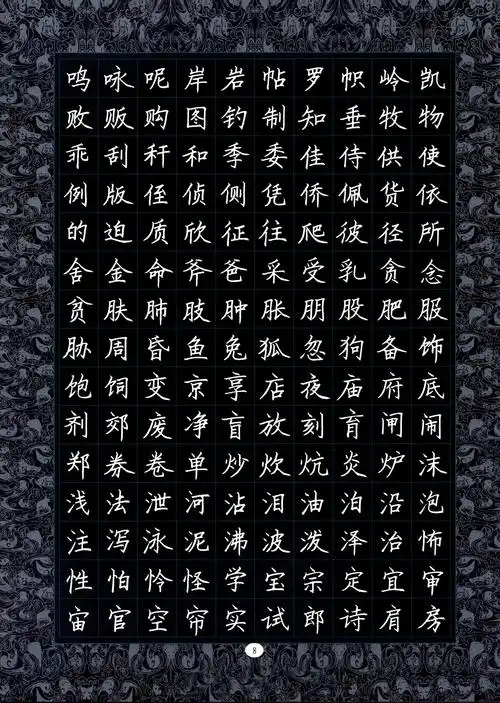 鸣咏呢岸岩帖罗帜岭凯
败贩购图钓制知垂牧物
乖刮秆和季委佳侍供使
例版侄侦侧凭侨佩货依
的迫质欣征往爬彼径所
舍金命斧爸采受乳贪念
贫肤肺肢肿胀朋股肥服
胁周昏鱼兔狐忽狗备饰
饱饲变京享店夜庙府底
剂郊废净盲放刻育闸闹
郑券卷单炒炊炕炎炉沫
浅法泄河沾泪油泊沿泡
注泻泳泥沸波泼泽治怖
性怕怜怪学宝宗定宜审
宙官空帘实试郎诗肩房
8